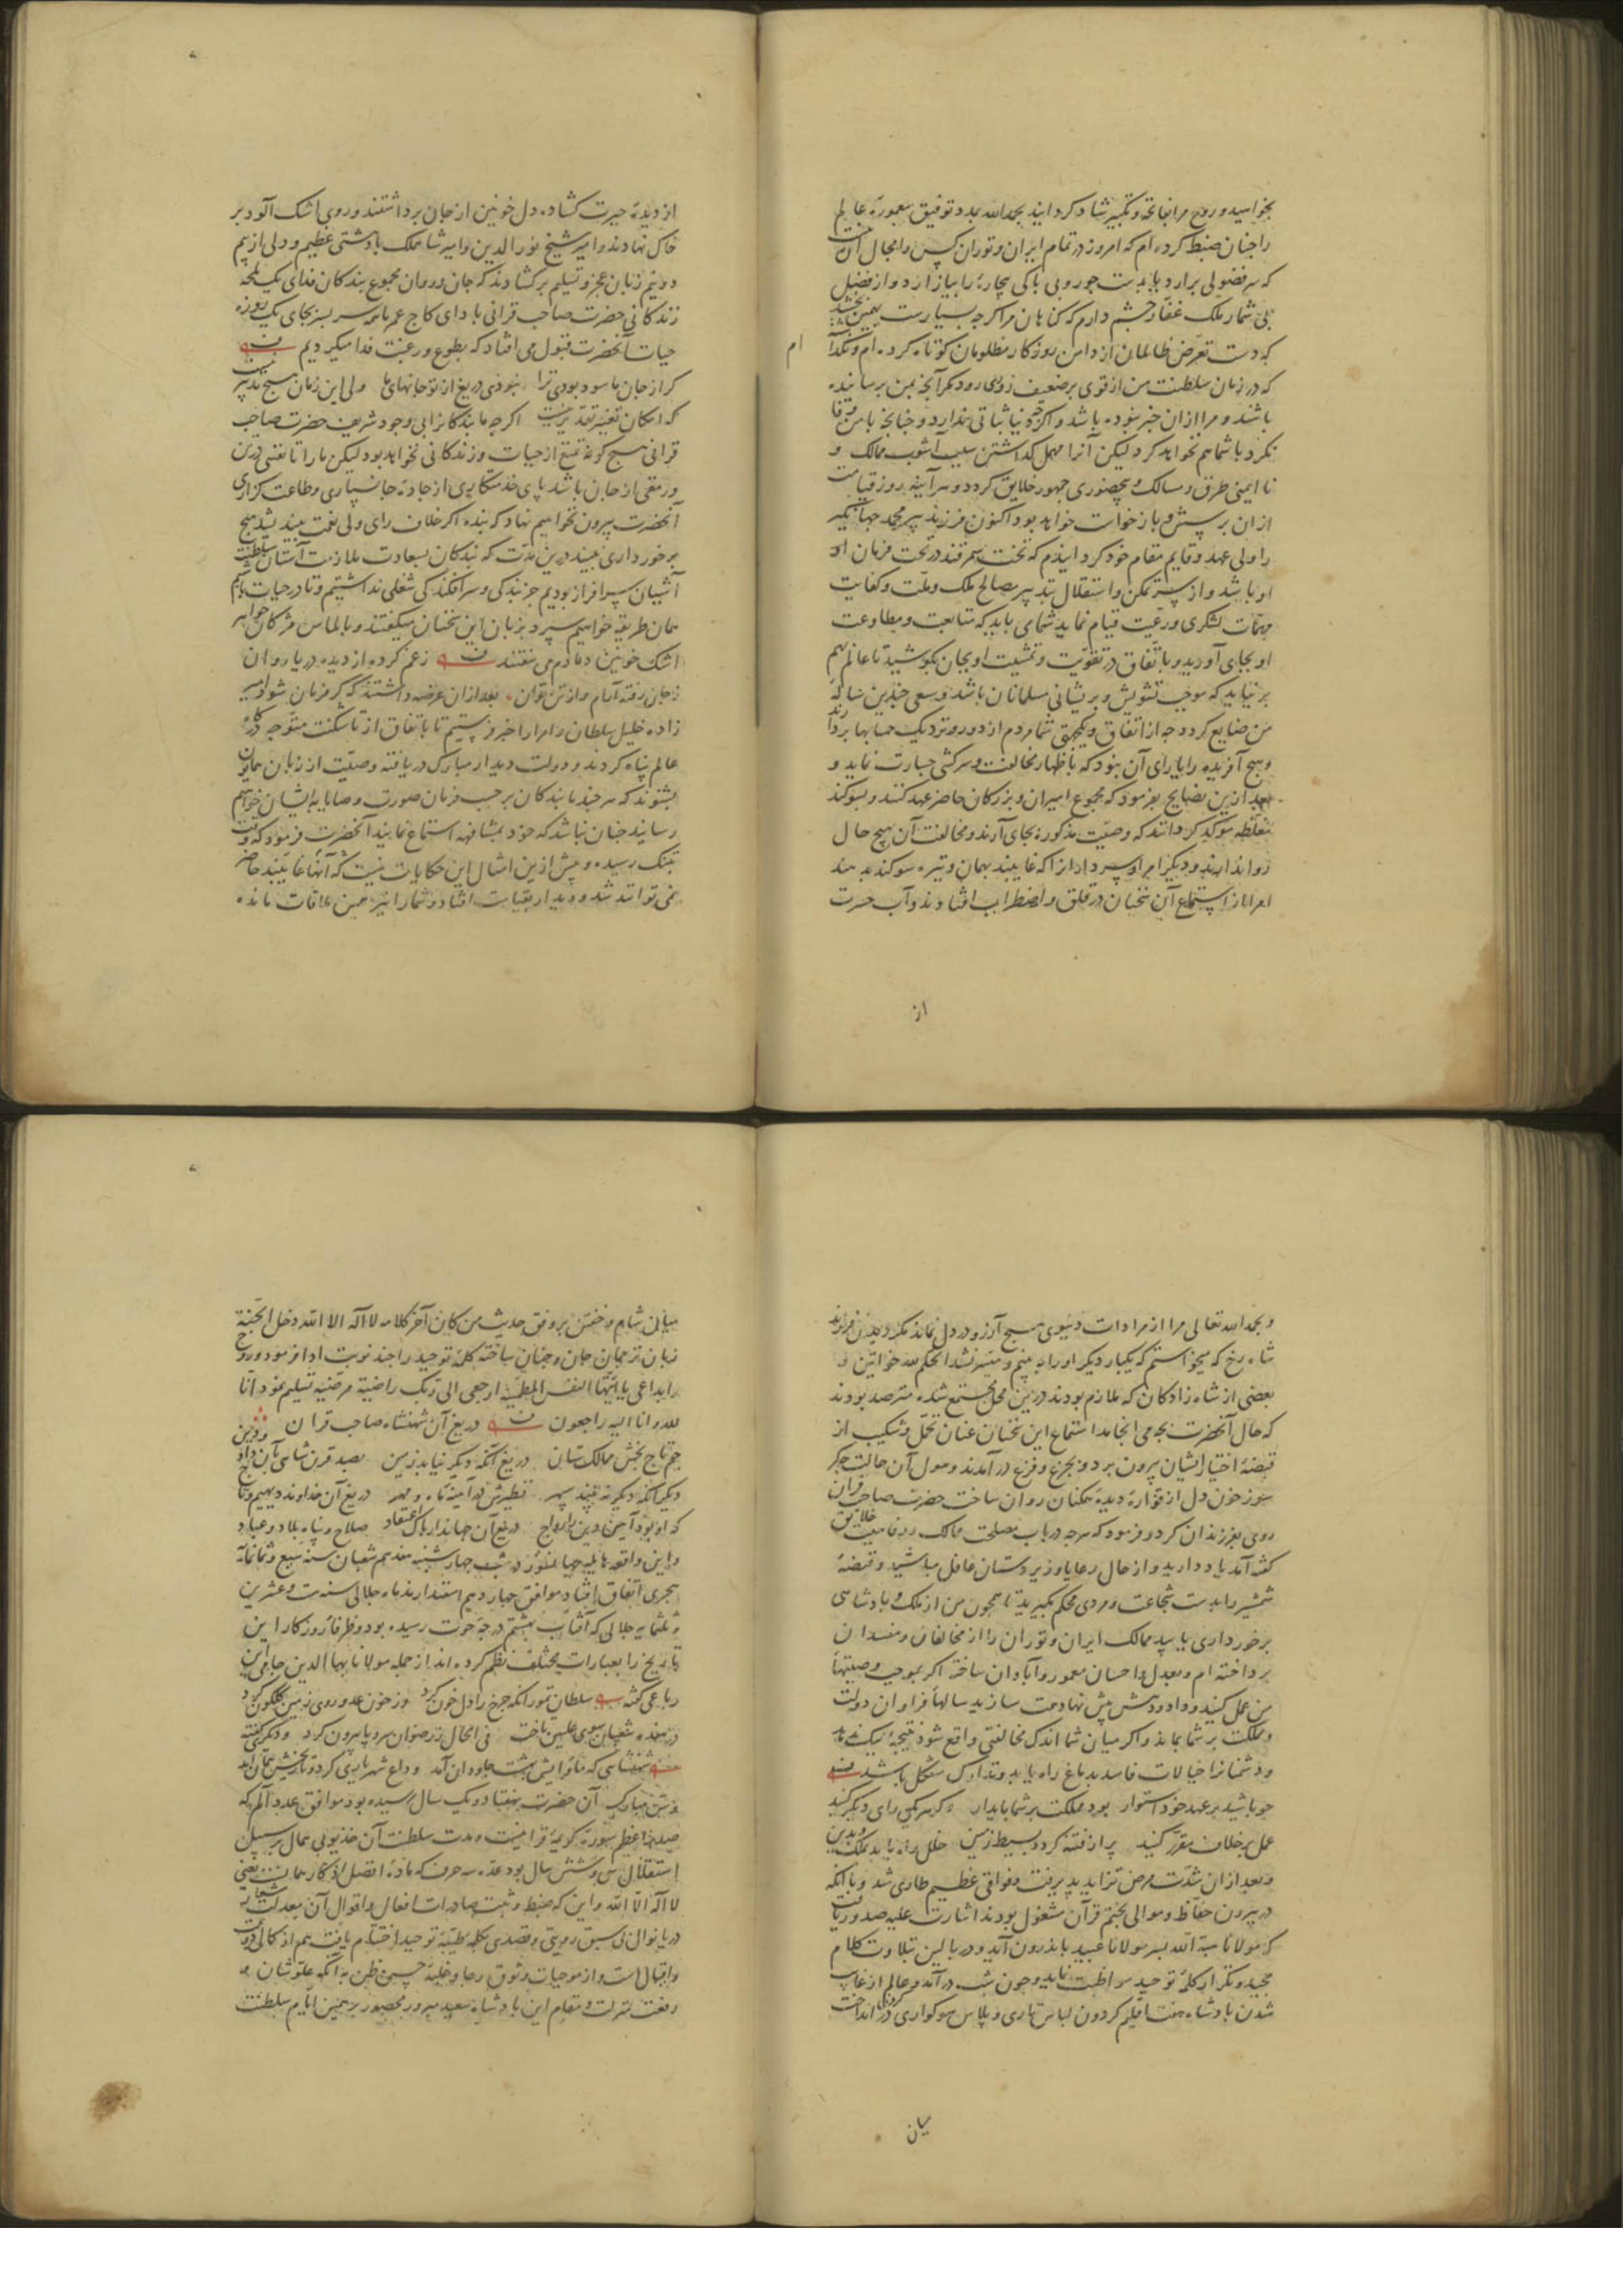 بخوانید و روح مرا بفاتحه و تکبیر شاد کردانید بحمدالله بمدد توفیق معموره عالم
را چنان ضبط کرده ام که امروز در تمام ایران و توران کس را مجال آن نیست
که سر فضولی برآرد یا بدست جور و بی باکی بیچاره را بیازارد و از فضل
بی شمار ملک غفار چشم دارم که کناهان مرا اکرچه بسیارست بهمین بخشد
که دست تعرض ظالمان از دامن روزکار مظلومان کوتاه کرده ام و نکذاشته
ام
که در زمان سلطنت من از قوی بر ضعیف زوری رود مکر آنچه بمن نرسانیده
باشند و مرا ازان خبر نبوده باشد و اکرچه دنیا ثباتی ندارد و چنانچه با من وفا
نکرد با شما هم نخواهد کرد لیکن آنرا مهمل کذاشتن سبب آشوب ممالک و
نا ایمنی طرق و مسالک و بیحضوری جمهور خلایق کردد و هر آینه روز قیامت
ازان پرسش و بازخواست خواهد بود اکنون فرزند پیر محمد جهانکیر
را ولی عهد و قایم مقام خود کردانیدم که تخت سمرقند در تحت فرمان او
او باشد و از سر تمکن و استقلال بتدبیر مصالح ملک و ملت و کفایت
مهمات لشکری و رعیت قیام نماید شما می باید که متابعت و مطاوعت
او بجای آورید و باتفاق در تقویت و تمشیت او بجان بکوشید تا عالم بهم
بر نیاید که موجب تشویش و پریشانی مسلمانان باشد و سعی چندین ساله
من ضایع کردد چه از اتفاق و یکجهتی شما مردم از دور و نزدیک حسابها بردارند
و هیچ آفریده را یارای آن نبود که باظهار مخالفت و سرکشی جسارت نماید و
بعد ازین نصایح بفرمود که مجموع امیران و بزرکان حاضر عهد کنند و بسوکند
مغلظه موکد کردانند که وصیت مذکوره بجای آرند و مخالفت آن بهیچ حال
روا ندارند و دیکر امرا و سرداران را که غایبند بهمان وتیره سوکند دهند
امرا از استماع آن سخنان در قلق و اضطراب افتادند و آب حسرت
از
از دیده حیرت کشاده دل خونین از جان برداشتند و روی اشک آلود بر
خاک نهادند و امیر شیخ نورالدین و امیر شاهملک با دهشتی عظیم و دلی از بیم
دو نیم زبان عجز و تسلیم برکشادند که جان و روان مجموع بندکان فدای یک لمحه
زندکانی حضرت صاحب قرانی باد ای کاج عمر ما همه سر بسر بجای یک روزه
حیات آنحضرت قبول می افتاد که بطوع و رغبت فدا میکردیم
کر از جان ما سود بودی ترا نبودی دریغ از تو جانهای ما ولی این زمان هیچ تدبیر
که امکان تغییر تقدیر نیست اکرچه ما بندکانرا بی وجود شریف حضرت صاحب
قرانی هیچ کونه تمتع از حیات و زندکانی نخواهد بود لیکن ما را تا نفسی در تن
و رمقی از جان باشد پای خدمتکاری از جاده جانسپاری و طاعت کزاری
آنحضرت بیرون نخواهیم نهاد که بنده اکر خلاف رای ولی نعمت بیندیشد هیچ
برخورداری نبیند درین مدت که بندکان بسعادت ملازمت آستان سلطنت
آشیان سرافراز بودیم جز بندکی و سرافکندکی شغلی نداشتیم و تا در حیات باشیم
همان طریقه خواهیم سپرد بزبان این سخنان میکفتند و بالماس مژکان جواهر
اشک خونین دمادم می سفتند ز غم کرده از دیده دریا روان
ز جان رفته آرام و از تن توان بعد ازان عرضه داشتند که کر فرمان شود امیر
زاده خلیل سلطان و امرا را خبر فرستیم تا باتفاق از تاشکنت متوجه درکاه
عالم پناه کردند و دولت دیدار مبارک دریافته وصیت از زبان همایون
بشنوند که هر چند ما بندکان بر حسب فرمان صورت وصایا بایشان خواهیم
رسانید چنان نباشد که خود بمشافهه استماع نمایند آنحضرت فرمود که وقت
تنک رسیده و بیش ازین امثال این حکایات نیست که آنها غایبند حاضر
نمی توانند شد و دیدار بقیامت افتاد و شما را نیز همین ملاقات مانده
و بحمدالله تعالی مرا از مرادات دنیوی هیچ آرزو در دل نماند مکر دیدن فرزند
شاه رخ که میخواستم که یکبار دیکر او را ببینم و میسر نشد الحکم لله خواتین و
بعضی از شاه زادکان که ملازم بودند درین محل مجتمع شده مترصد بودند
که حال آنحضرت بچه می انجامد استماع این سخنان عنان تحمل و شکیب از
قبضه اختیار ایشان بیرون برد و بجزع و فزع در آمدند و هول آن حالت جکر
سوز خون دل از فواره دیده همکنان روان ساخت حضرت صاحب قران
روی بفرزندان کرد و فرمود که هرچه در باب مصلحت ممالک و رفاهیت خلایق
کفته آمد یاد دارید و از حال رعایا و زیردستان غافل مباشید و قبضه
شمشیر را بدست شجاعت و مردی محکم بکیرید تا همچون من از ملک و پادشاهی
برخورداری یابید ممالک ایران و توران را از مخالفان و مفسدان
پرداخته ام و بعدل و احسان معمور و آبادان ساخته اکر بموجب وصیتها
من عمل کنید و داد و دهش پیش نهاد همت سازید سالها فراوان دولت
و مملکت بر شما بماند و اکر میان شما اندک مخالفتی واقع شود نتیجه نیک ندهد
و دشمنانرا خیالات فاسد بدماغ راه یابد و تدارک مشکل باشد
چو باشید بر عهد خود استوار بود مملکت بر شما پایدار و کر هر یکی رای دیکر کنید
عمل بر خلاف مقرر کنید پر از فتنه کردد بسیط زمین خلل راه یابد بملک و بدین
و بعد ازان شدت مرض تزاید پذیرفت و فواقی عظیم طاری شد و با آنکه
در بیرون حفاظ و موالی بختم قرآن مشغول بودند اشارت علیه صدور یافت
که مولانا هبة الله پسر مولانا عبید باندرون آید و در بالین بتلاوت کلام
مجید و تکرار کلمه توحید مواظبت نماید و چون شب در آمد و عالم از غیاب
شدن پادشاه هفت اقلیم کردون لباس تاری و پلاس سوکواری در کردن انداخت
میان
میان شام و خفتن بر وفق حدیث من کان آخر کلامه لا اله الا الله دخل الجنة
زبان ترجمان جان و جنان ساخته کلمه توحید را چند نوبت ادا فرمود و روح
را بداعی یا ایتها النفس المطمئنة ارجعی الی ربک راضیة مرضیة تسلیم نمود انا
لله و انا الیه راجعون دریغ آن شهنشاه صاحب قران
جم تاج بخش ممالک ستان دریغ آنکه دیکر نیابد زمین بصد قرن شاهی بآن داد و دین
دیکر آنکه دیکر نه بیند سپهر نظیرش در آیینه ماه و مهر دریغ آن خداوند دیهیم و تاج
که او بود آیین دین را رواج دریغ آن جهاندار پاک اعتقاد صلاح و پناه بلاد و عباد
و این واقعه هایله جهانسوز در شب چهارشنبه هفدهم شعبان سنه سبع و ثمانمایة
هجری اتفاق افتاد موافق چهاردهم اسفندارمذ ماه جلالی سنه ست و عشرین
و ثلثمایه جلالی که آفتاب بهشتم درجه حوت رسیده بود و ظرفا روزکار این
تاریخ را بعبارات مختلف نظم کرده اند از جمله مولانا بهاالدین جامی این
رباعی کفته سلطان تمور آنکه چرخ را دل خون کرد وز خون عدو روی زمین کلکون کرد
در هفده شعبان سوی علیین تاخت فی الحال ز رضوان سر و پا بیرون کرد و دیکری کفته
شهنشاهی که ماوایش بهشت جاودان آمد وداع شهریاری کرد و تاریخش همان آمد
و سن مبارک آن حضرت بهفتاد و یک سال رسیده بود موافق عدد الم که
صدر اعظم سوره کریمه قرانیست و مدت سلطنت آن خدیو بی همال بر سبیل
استقلال سی و شش سال بود عده سه حرف که ماده افضل اذکار همانست یعنی
لا اله الا الله و این که ضبط و ثبت صادرات افعال و اقوال آن معدلت شعار
دریانوال بی سبق رویتی و قصدی بکلمه طیبه توحید اختتام یافت هم از کمال دولت
و اقبال است و از موجبات وثوق رجا و غلبه حسن ظن به آنکه علو شان و
رفعت منزلت و مقام این پادشاه سعید مبرور محصور بر همین ایام سلطنت